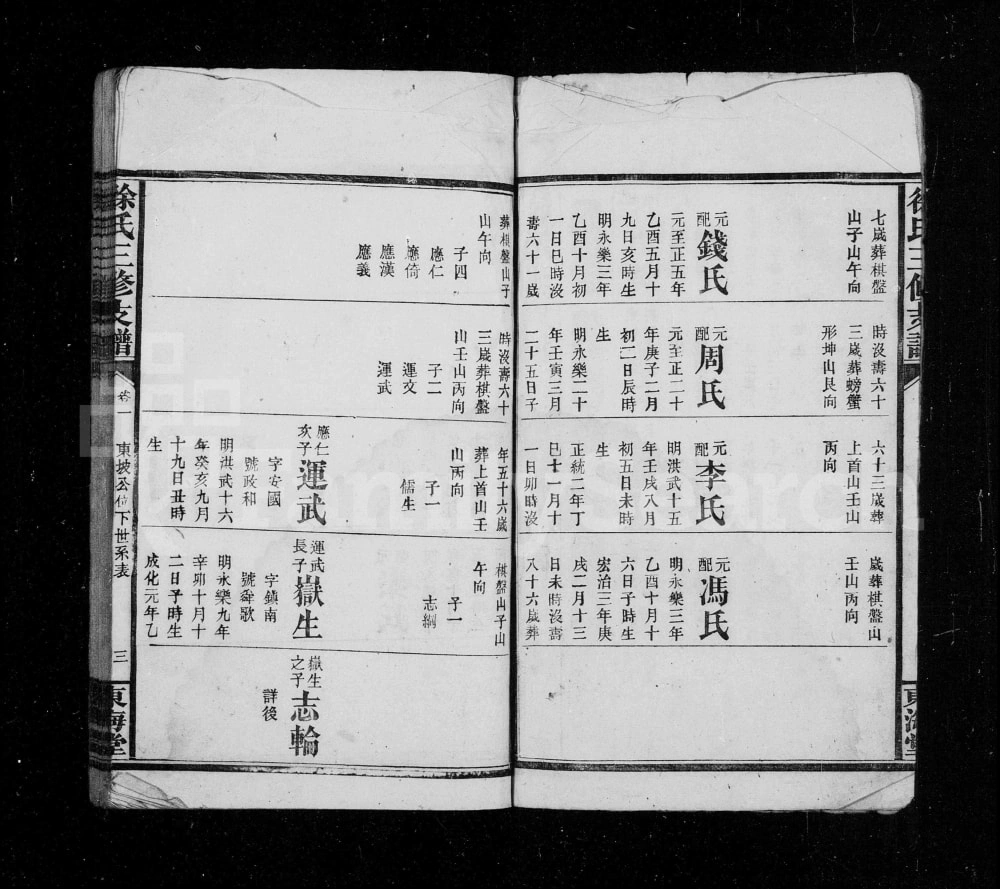 徐氏三修支譜
東海堂
七歲葬棋盤
山子山午向
元配錢氏
元至正五年
乙酉五月十
九日亥時生
明永樂三年
乙酉十月初
一日巳時沒
壽六十一歲
時沒壽六十
三歲葬螃蟹
形坤山艮向
元配周氏
元至正二十
年庚子二月
初二日辰時
生
明永樂二十
年壬寅三月
二十五日子
六十三歲葬
上首山壬山
丙向
元配李氏
明洪武十五
年壬戌八月
初五日未時
生
正統二年丁
巳十一月十
一日卯時沒
歲葬棋盤山
壬山丙向
元配馮氏
明永樂三年
乙酉十月十
六日子時生
宏治三年庚
戌二月十三
日未時沒壽
八十六歲葬
葬棋盤山子
山午向
子四
應仁
應倚
應漢
應義
時沒壽六十
三歲葬棋盤
山壬山丙向
子二
運文
運武
年五十六歲
葬上首山壬
山丙向
子一
儒生
應仁次子運武
字安國
號政和
明洪武十六
年癸亥九月
十九日丑時
生
棋盤山子山
午向
子一
志綱
運武長子嶽生
字鎮南
號舜歌
明永樂九年
辛卯十月十
二日子時生
成化元年乙
嶽生之子志輪
詳後
徐氏三修支譜
卷一
東披公位下世系表
三
東海堂